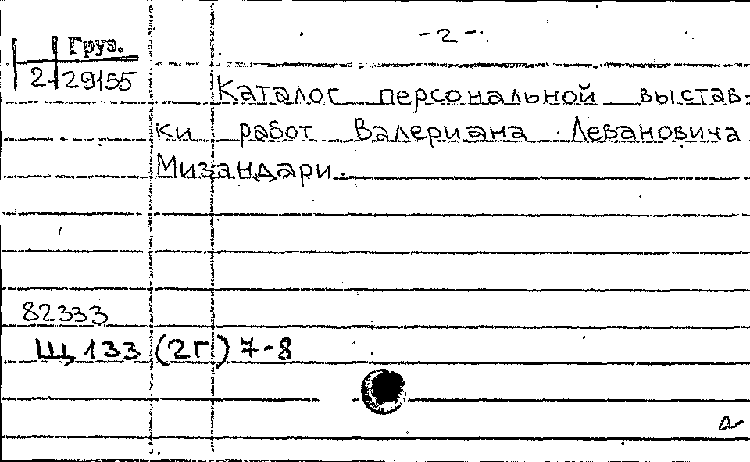 - 2 -
Груз.
2-29155
Каталог персональной выстав-
ки работ Валериана Левановича
Мизандари.
82333
Щ 133 (2Г) 7-8